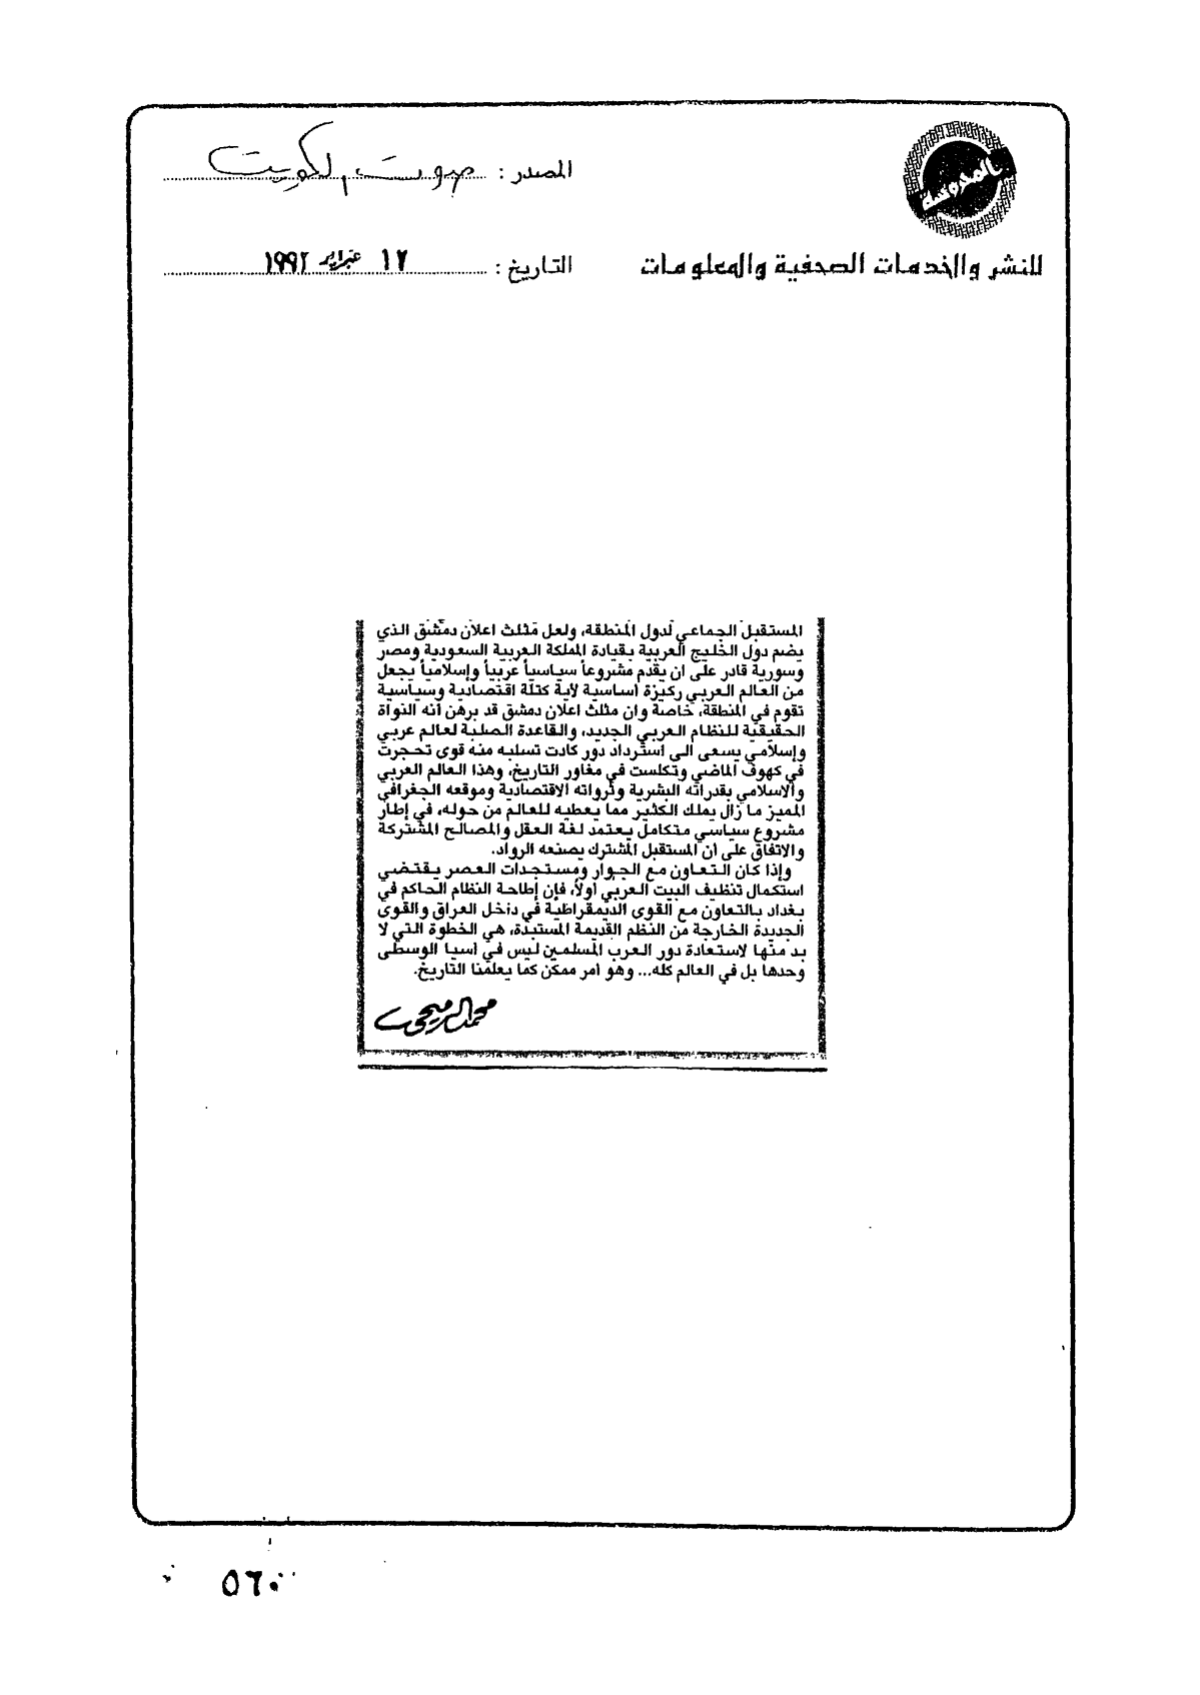 المصدر : صوت الكويت
للنشر والخدمات الصحفية والمعلومات
التاريخ : ١٢ فبراير ١٩٩٢
المستقبل الجماعي لدول المنطقة، ولعل مثلث اعلان دمشق الذي
يضم دول الخليج العربية بقيادة المملكة العربية السعودية ومصر
وسورية قادر على ان يقدم مشروعاً سياسياً عربياً وإسلامياً يجعل
من العالم العربي ركيزة اساسية لاية كتلة اقتصادية وسياسية
تقوم في المنطقة، خاصة وان مثلث اعلان دمشق قد برهن أنه النواة
الحقيقية للنظام العربي الجديد، والقاعدة الصلبة لعالم عربي
وإسلامي يسعى الى استرداد دور كادت تسلبه منه قوى تحجرت
في كهوف الماضي وتكلست في مغاور التاريخ، وهذا العالم العربي
والاسلامي بقدراته البشرية وثرواته الاقتصادية وموقعه الجغرافي
المميز ما زال يملك الكثير مما يعطيه للعالم من حوله، في إطار
مشروع سياسي متكامل يعتمد لغة العقل والمصالح المشتركة
والاتفاق على أن المستقبل المشترك يصنعه الرواد.
وإذا كان التعاون مع الجوار ومستجدات العصر يقتضي
استكمال تنظيف البيت العربي أولاً، فإن إطاحة النظام الحاكم في
بغداد بالتعاون مع القوى الديمقراطية في داخل العراق والقوى
الجديدة الخارجة من النظم القديمة المستبدة، هي الخطوة التي لا
بد منها لاستعادة دور العرب المسلمين ليس في آسيا الوسطى
وحدها بل في العالم كله... وهو أمر ممكن كما يعلمنا التاريخ.
محمد الرميحي
٥٦٠